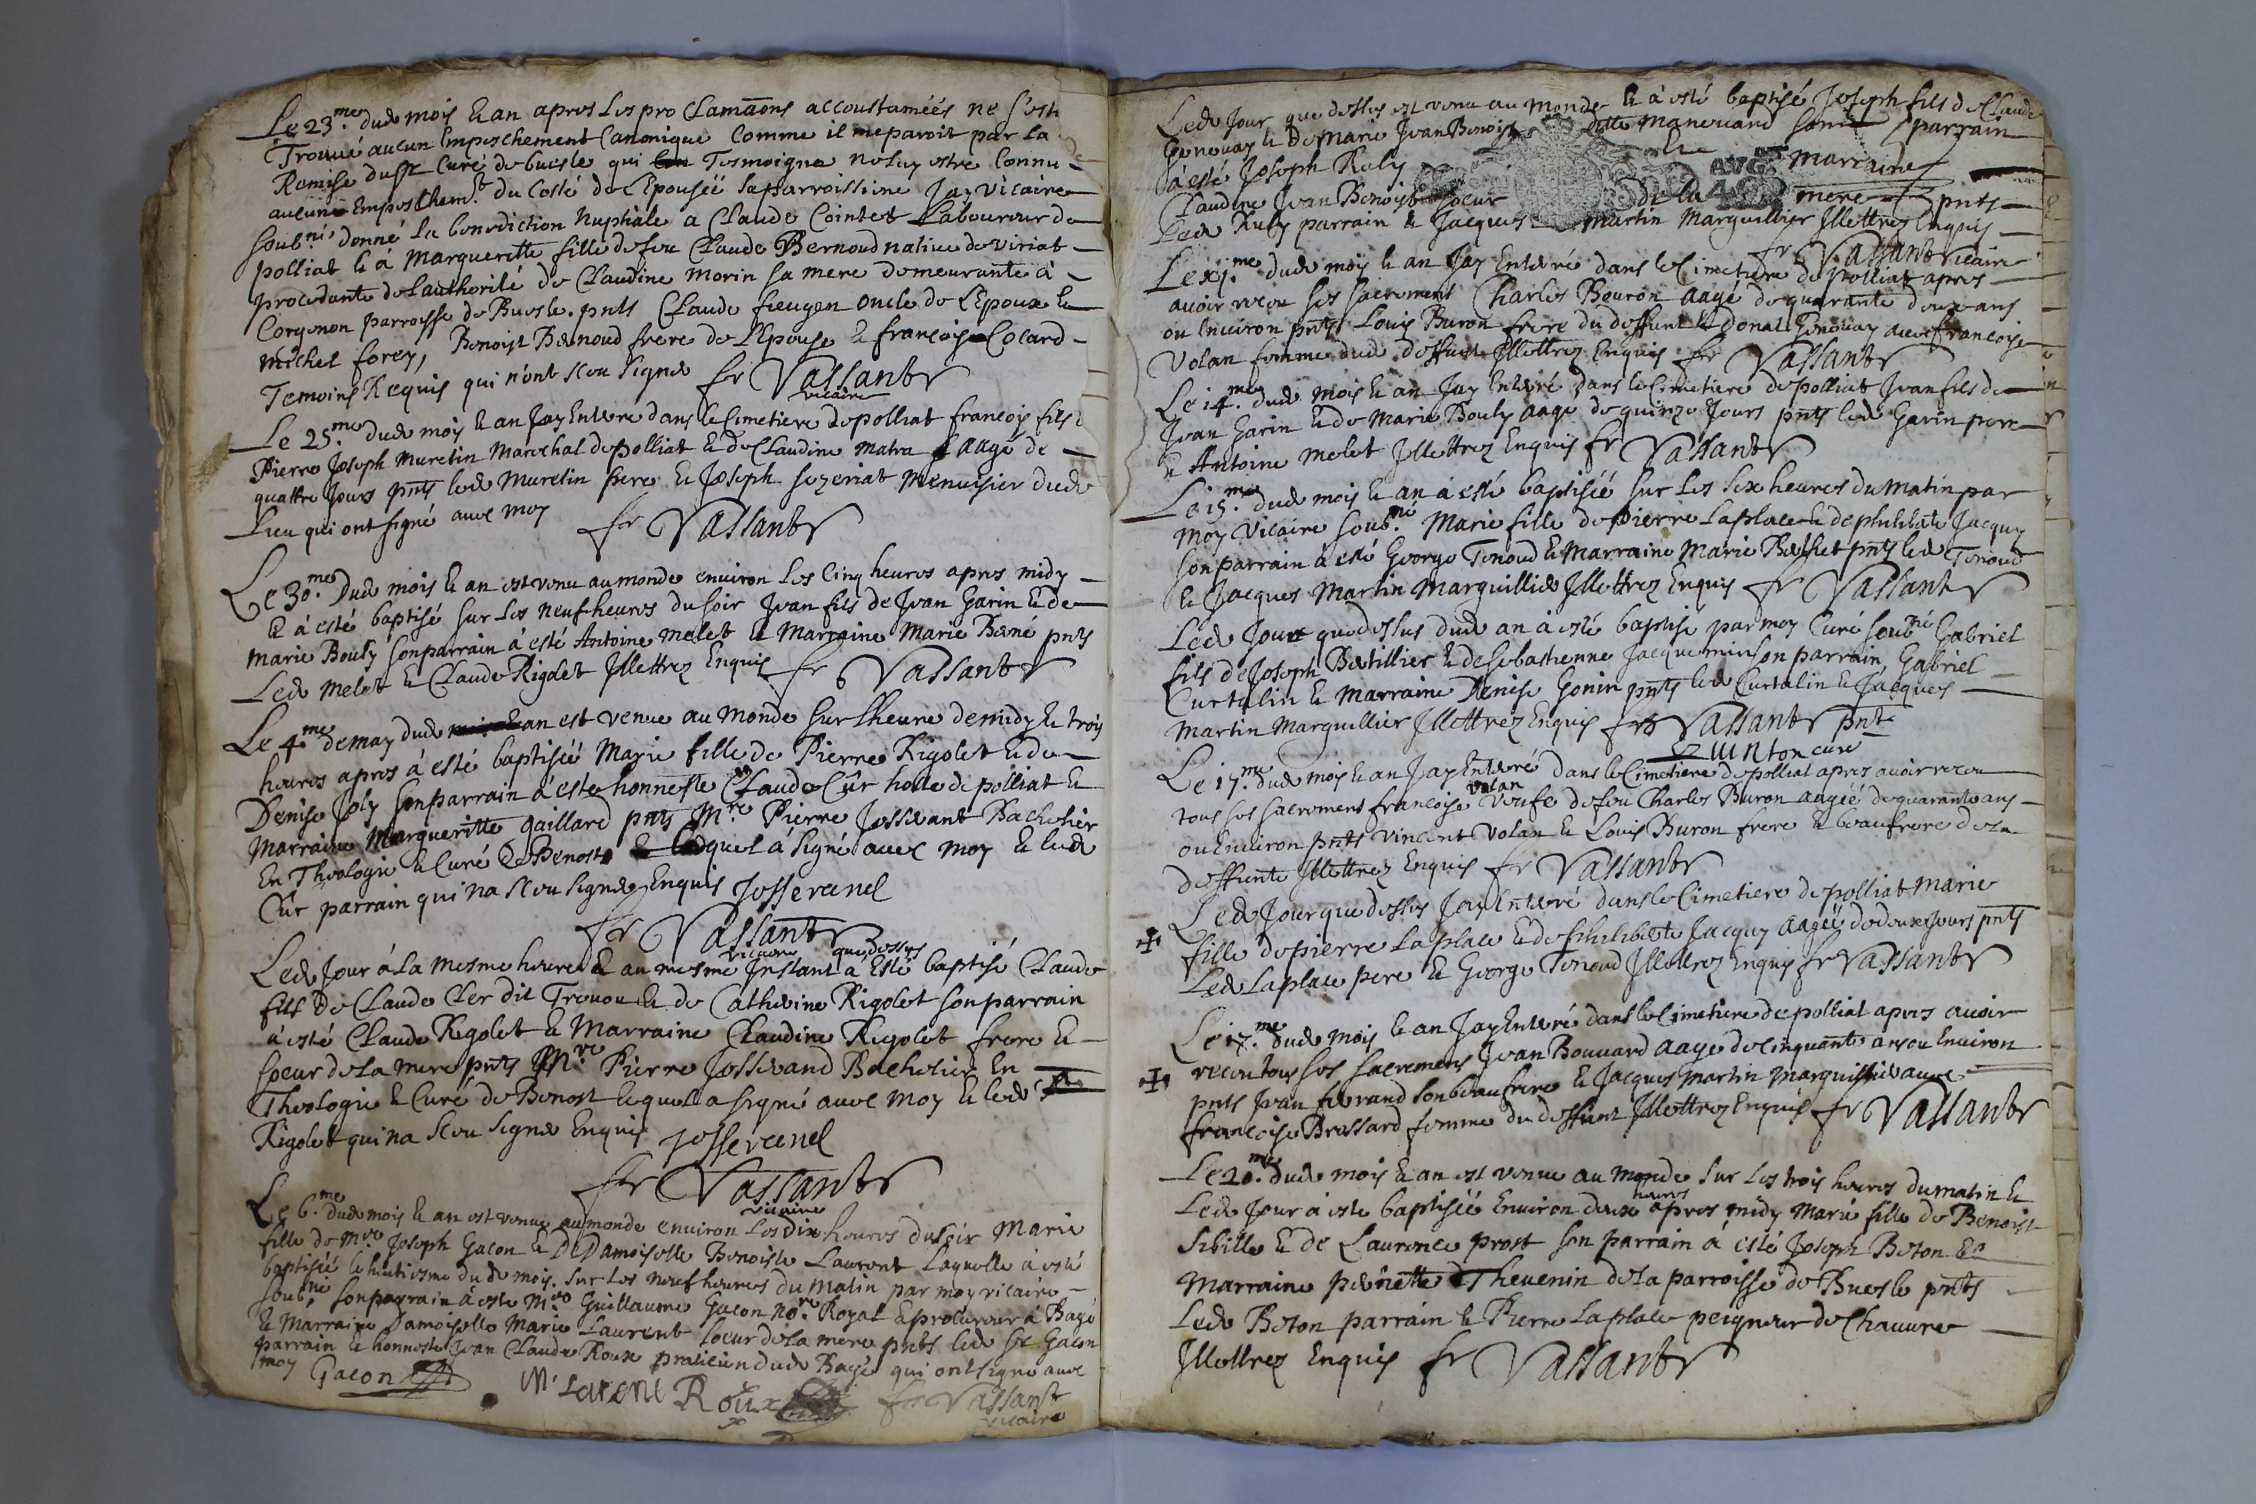 Le 23.me dud mois & an apres les proclamaons accoustaméés ne s'est
Trouué aucun Empeschement Canonique Comme il me paroit par la
Remise du sr Curé de buesle qui Tesmoigne ne luy estre Connu
aucune Empeschemt. du Costé de l'Epouséé sa parroissiene Jay vicaire
soubné donné la benediction Nuptiale a Claude Cointet Laboureur de
polliat & a Marguerite fille de feu Claude Bernoud natiue de viriat
procedante de l'authorité de Claudine Morin sa mere demeurante à
Corgenon parroisse de Buesle. pnts Claude fieugen oncle de l'Epoux &
Michel forey, Benoist Bernoud frere de l'Epouse & françois Cocard
Temoins Requis qui n'ont sceu signer fr Vassant
vicaire
Le 25.me dud mois & an Jay Enterre dans le Cimetiere de polliat francois fils d
Pierre Joseph Muretin Marechal de polliat & de Claudine Matra aagé de
quattre Jours pnts led Muretin pere & Joseph sezeriat Menuisier dud
Lieu qui ont signé auec moy fr Vassant
Le 30.me Dud mois & an est venu au monde enuiron les Cinq heures apres midy
& à esté baptisé sur les neuf heures du soir Jean fils de Jean Garin & de
Marie Bouly son parrain à esté Antoine Melet & Marraine Marie Bené pnts
Led Melet & Claude Rigolet Jllettrez Enquis fr Vassant
Le 4.me de may dud an est venue au monde sur l'heure de midy & trois
heures apres à esté baptiséé Marie fille de Pierre Rigolet & de
Denise Joly son parrain à esté honneste Claude Cûr hoste de polliat &
Marraine Marguerite Gaillard pnts Mre. Pierre Josserand Bachelier
En Theologie & Curé de Benost lequel à signé auec moy & led
Cûr parrain qui na sceu signer Enquis Josserand
fr Vassant
vicaire
Led Jour à la mesme heure & au mesme Jnstant que dessus a Esté baptisé Claude
fils de Claude Cler dit Trouou & de Catherine Rigolet son parrain
à esté Claude Rigolet & Marraine Claudine Rigolet frere &
soeur de la mere pnts Mre Pierre Josserand Bachelier En
Theologie & Curé de Benost lequel a signé auec moy & led
Rigolet qui na sceu signer Enquis Josserand
fr Vassant
vicaire
Le 6.me dud mois & an est venue au monde enuiron les Dix heures du soir Marie
fille de Mre Joseph Gacon & De Damoiselle Benoiste Laurent Laquelle à esté
baptiséé le huictiesme du d mois. sur les neuf heures du Matin par moy vicaire
soubné, son parrain à esté Mre Guillaume Gacon Nore Royal & procureur à Bagé
& Marraine Damoiselle Marie Laurent soeur de la mere pnts led Sr Gacon
parrain & honneste Jean Claude Roux praticien dud Bagé qui ont signé auec
moy Gacon M Larent Roux fr Vassant
vicaire
Led Jour que dessus est venu au monde & à esté baptisé Joseph fils de Claude
Genouay & De Marie Jean Benoist dite manouard son parrain
à esté Joseph Ruby & marraine
Claudine Jean Benoist soeur de la mere pnts
Led Ruby parrain & Jacques Martin Marguillier Jllettrez Enquis
fr Vassant vicaire
Le xj.me dud mois & an Jay Enterré dans le Cimetiere de polliat apres
auoir receu ses sacrements Charles Bouron aagé de quarante deux ans
ou Enuiron pnts Louis Buron frere du deffunt & Donat Genouay auec francoise
Volan femme dud deffunt Jllettrez Enquis fr Vassant
Le 14.me dud mois & an Jay Enterré dans le Cimetiere de polliat Jean fils de
Jean Garin & de Marie Bouly aagé de quinze Jours pnts led Garin pere
& Antoine Melet Jllettrez Enquis fr Vassant
Le 15.me dud mois & an à esté baptiséé sur les six heures du matin par
moy Vicaire soub.né Marie fille de Pierre Laplace & de philiberte Jacquy
son parrain à esté George Tenoud & Marraine Marie Bechet pnts led Tenoud
& Jacques Martin Marguillier Jllettrez Enquis fr Vassant
Led Jour que dessus dud an à esté baptisé par moy Curé soubné Gabriel
fils de Joseph Batillier & de Sebastienne Jacquemin son parrain Gabriel
Curtalin & Marraine Denise Gonin pnts led Curtalin & Jacques
Martin Marguillier Jllettrez Enquis fr Vassant pnt
Quinton curé
Le 17.me dud mois & an Jay Enterré dans le Cimetiere de polliat apres auoir receu
tous ses sacremens francoise volan veufe de feu Charles Buron aagéé de quarante ans
ou Enuiron pnts Vincent Volan & Louis Buron frere & beaufrere de la
deffunte Jllettrez Enquis fr Vassant
Led Jour que dessus Jay Enterré dans le Cimetiere de polliat Marie
fille de pierre Laplace & de philiberte Jacquy aagéé de deux Jours pnts
Led Laplace pere & George Tenoud Jllettrez Enquis fr Vassant
Le 17.me dud mois & an Jay Enterré dans le Cimetiere de polliat apres auoir
receu tous ses sacremens Jean Bouuard aagé de Cinquante ans ou Enuiron
pnts Jean feurand son beaufrere & Jacques Martin Marguillier auec
francoise Brossard femme du deffunt Jllettrez Enquis fr Vassant
Le 20.me dud mois & an est venue au monde sur les trois heures du matin &
Led Jour à esté baptiséé Enuiron deux heures apres midy Marie fille de Benoist
Sibille & de Laurence prost son parrain à esté Joseph Beton &
Marraine pernette Theuenin de la parroisse de Buesle pnts
Led Beton parrain & Pierre Laplace peigneur de Chauure
Jllettrez Enquis fr Vassant